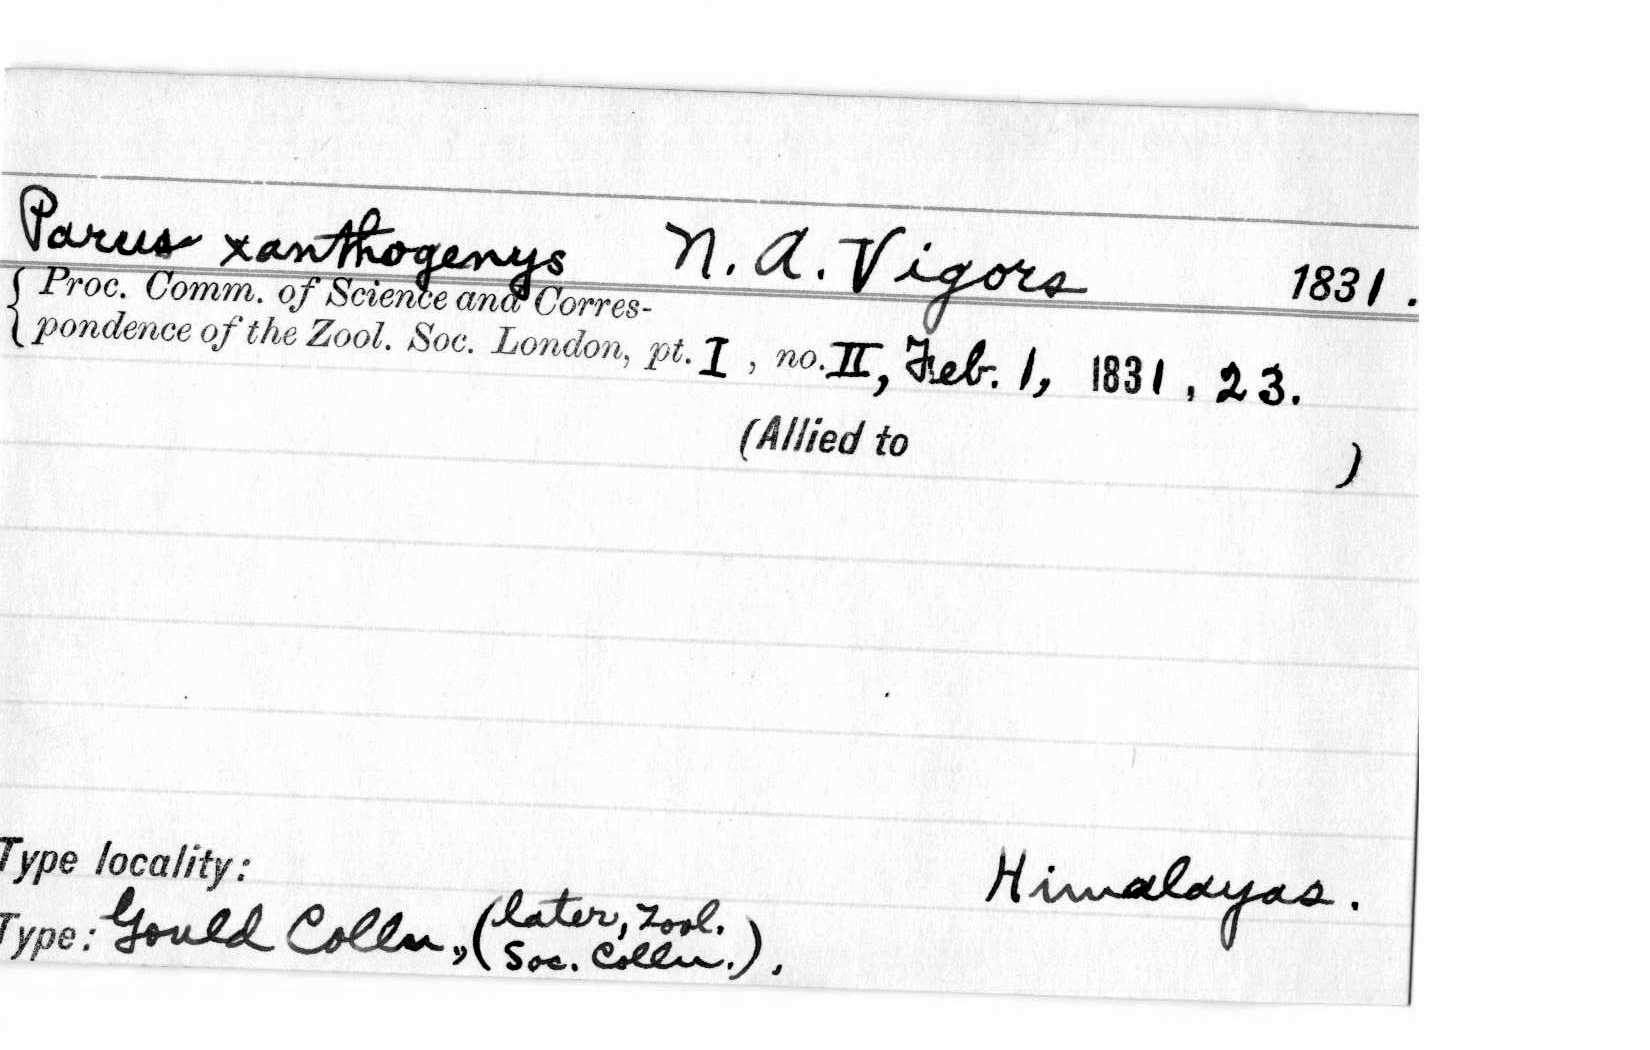 Parus xanthogenys N. A. Vigors 1831.
{ Proc. Comm. of Science and Corres-
pondence of the Zool. Soc. London, pt. I, no. II, Feb. 1, 1831, 23.
(Allied to )
Type locality: Himalayas.
Type: Gould Colln., (later, Zool.
Soc. Colln.).